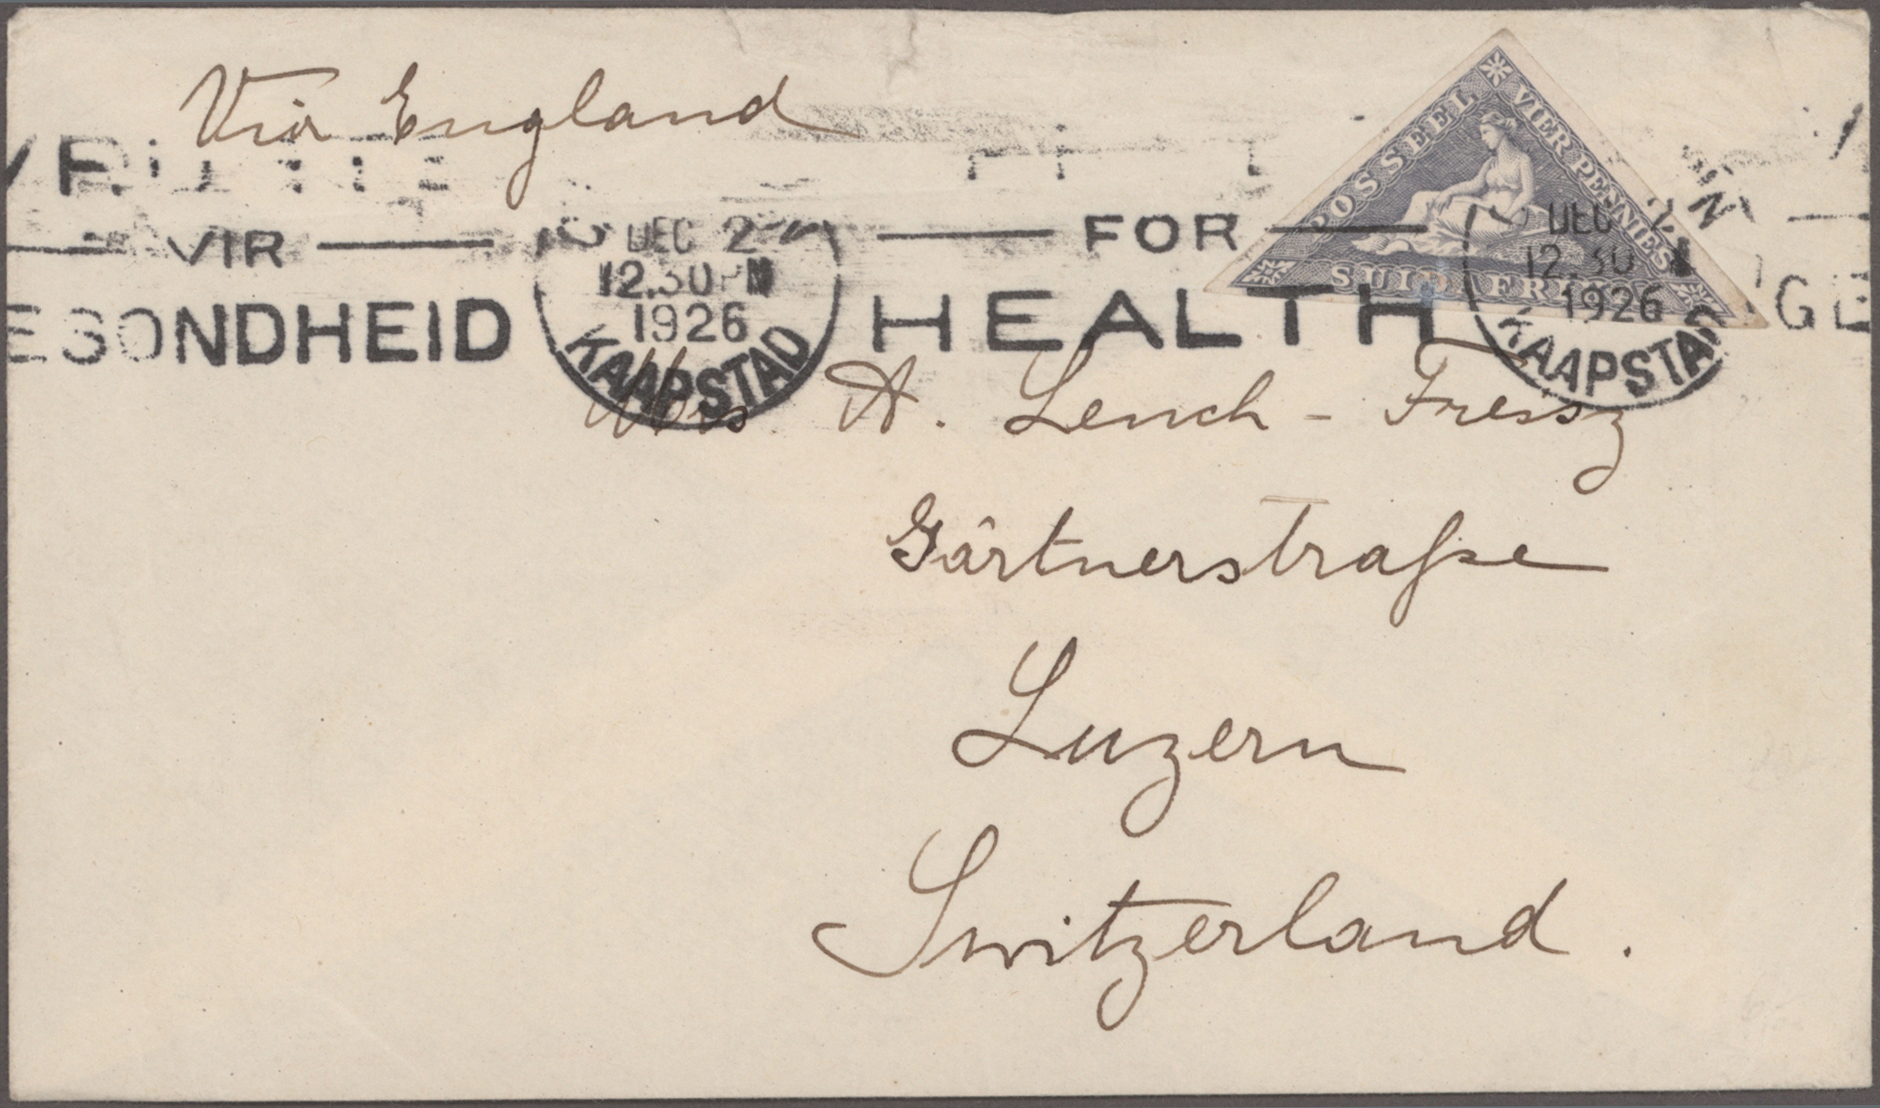 Via England
POSSEEL
VIER PENNIES
SUID AFRIKA
VIR
ESONDHEID
DEC 2
12.30 PM
1926
KAAPSTAD
FOR
HEALTH
DEC
12.30
1926
KAAPSTAD
GE
A. Lench - Fressz
Gärtnerstraße
Luzern
Switzerland.